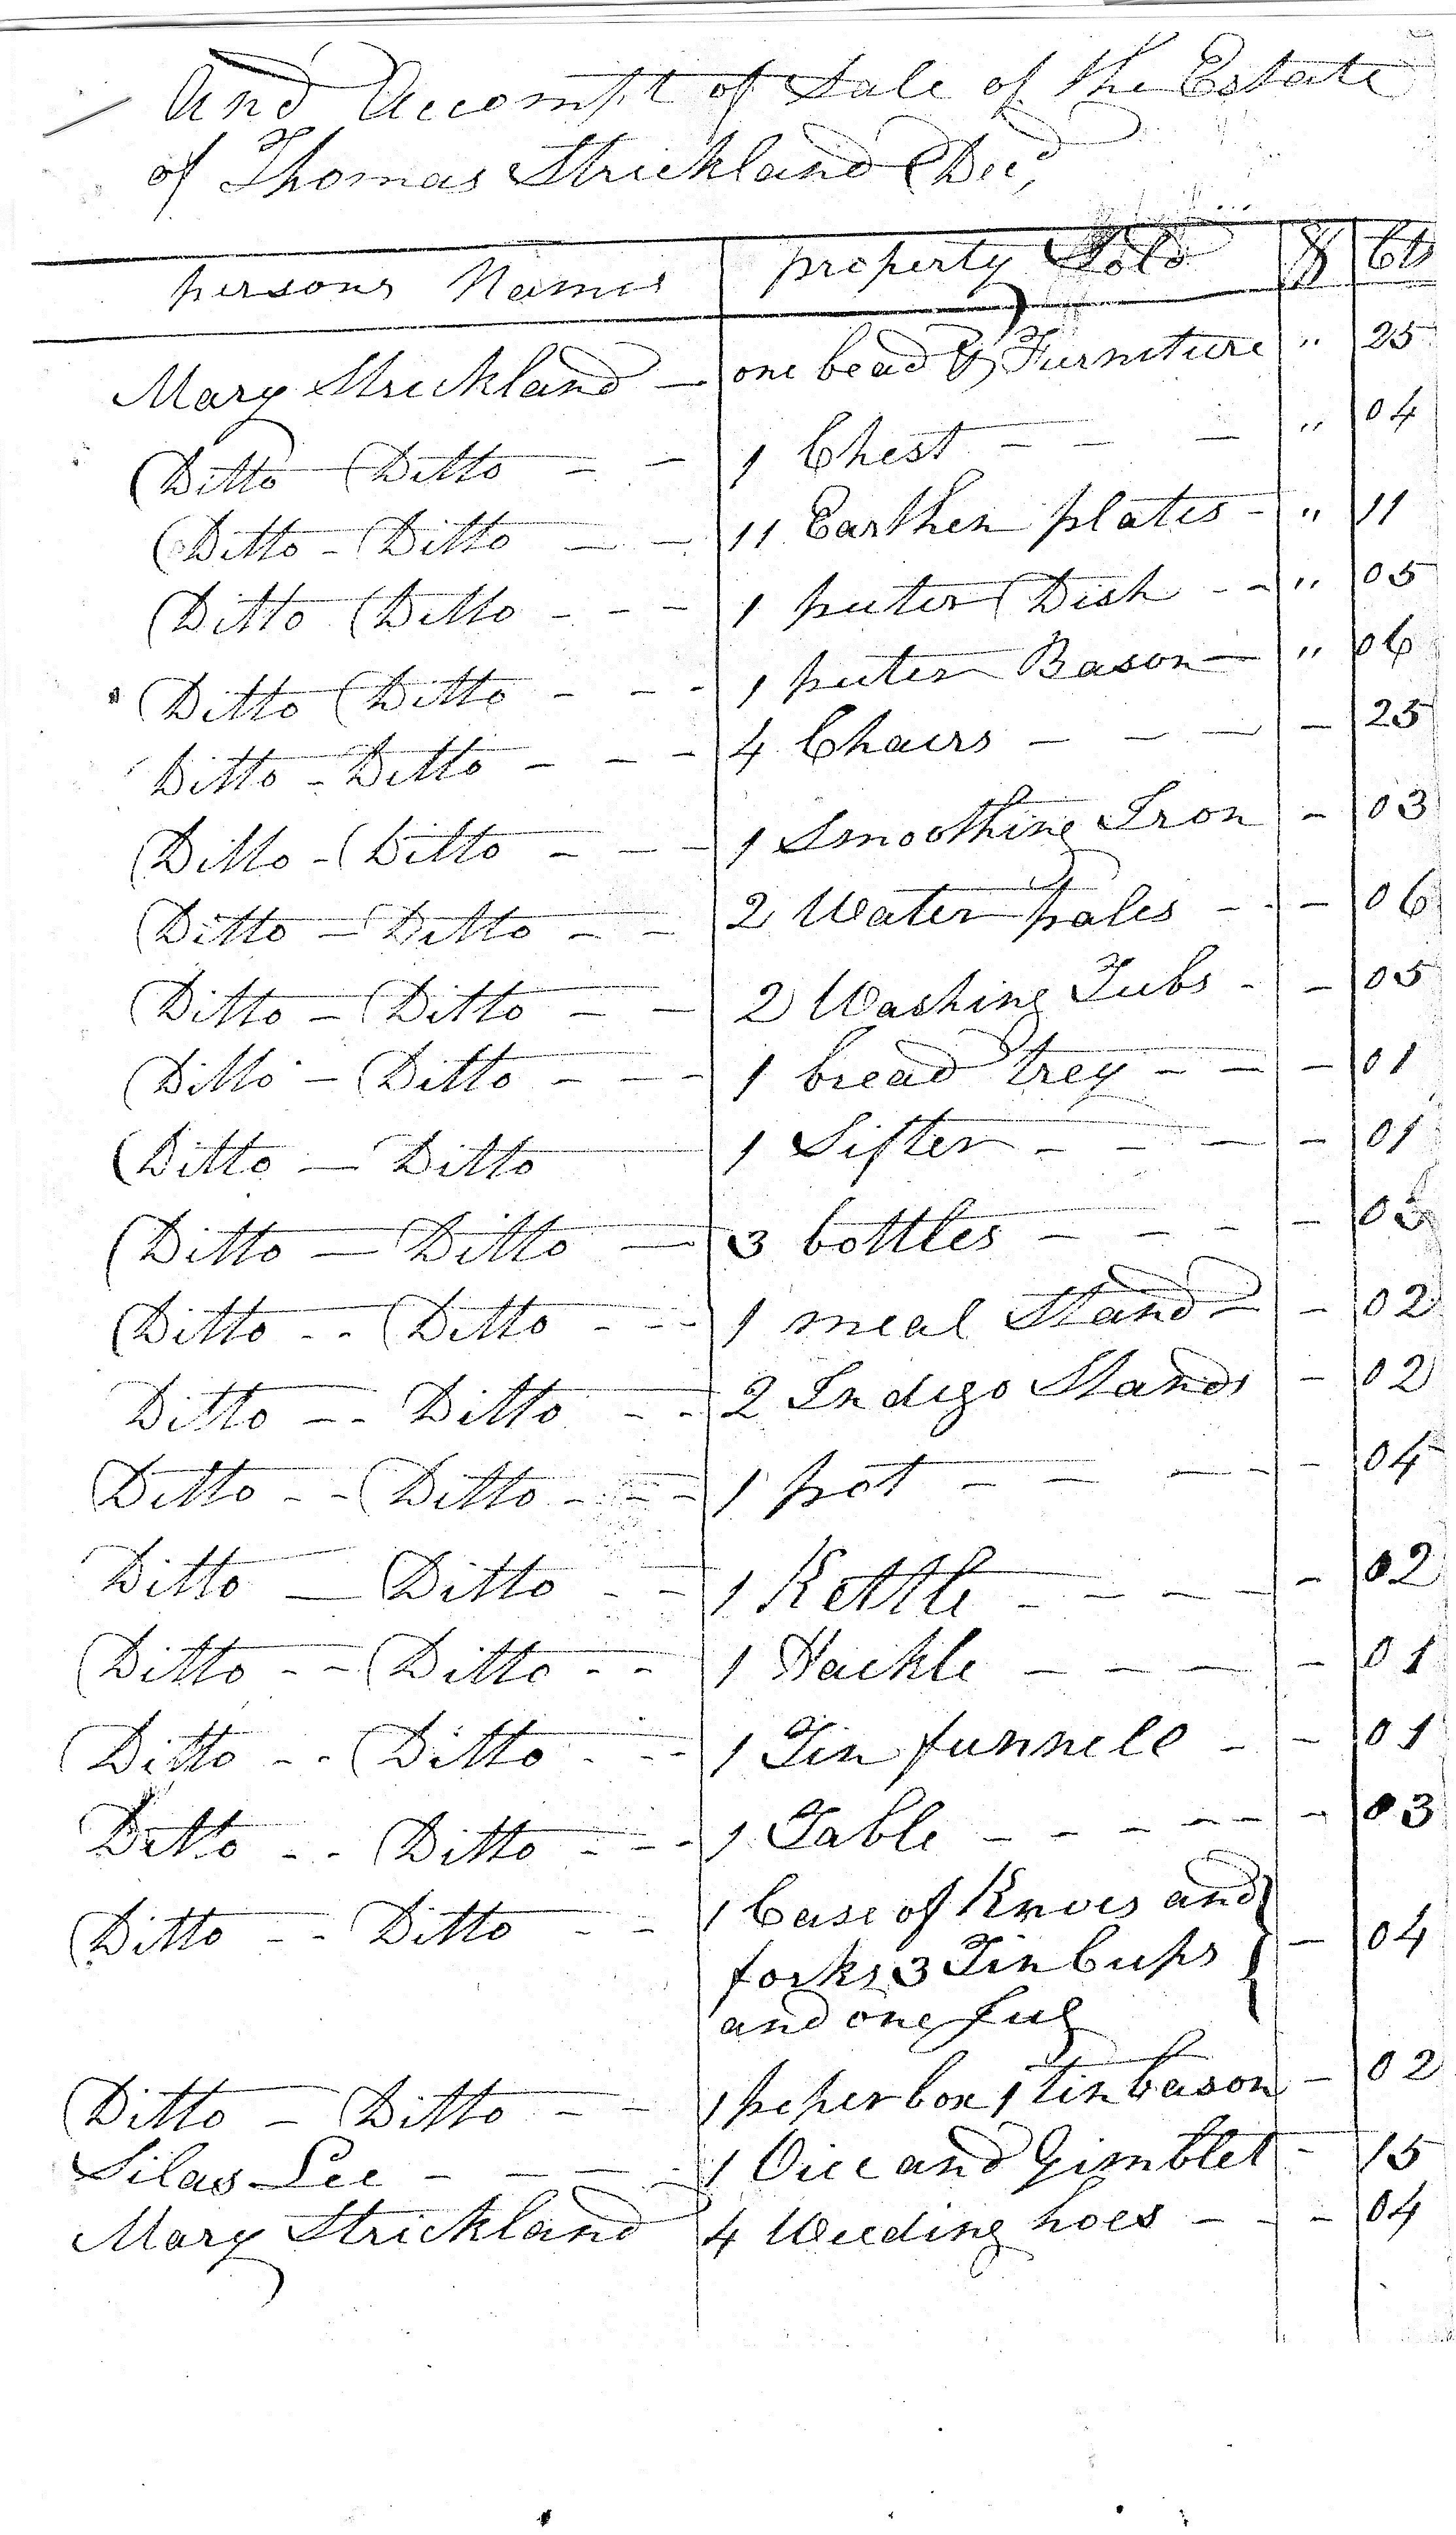 And Accompt of Sale of the Estate
of Thomas Strickland Decd,
persons Names property Sold $ Cts
Mary Strickland — one bead & Furniture " 25
Ditto Ditto - — 1 Chest - — — " 04
Ditto - Ditto — — 11 Earthen plates - " 11
Ditto Ditto - - - 1 puter Dish - - " 05
Ditto Ditto - - - 1 puter Bason — " 06
Ditto - Ditto - - - 4 Chairs — - — - 25
Ditto - Ditto - - - 1 Smoothing Iron - 03
Ditto — Ditto - - 2 Water pales - - - 06
Ditto - Ditto - - 2 Washing Tubs - - 05
Ditto - Ditto - - - 1 bread trey - - - 01
Ditto — Ditto 1 Sifter - - — - 01
Ditto — Ditto — 3 bottles - - - - 03
Ditto - - Ditto - - - 1 meal Stand - - 02
Ditto - - Ditto - - 2 Indigo Stands - 02
Ditto - - Ditto - - - 1 pot - - - - - 04
Ditto — Ditto - - 1 Kettle - - - - - 02
Ditto - - Ditto - - 1 Hackle - - — - 01
Ditto - - Ditto - - - 1 Tin funnele - - 01
Ditto - - Ditto - - - 1 Table - - - - - - 03
Ditto - - Ditto - - 1 Case of Knves and
forks 3 Tin Cups - 04
and one Jug
Ditto - Ditto - - 1 peper box 1 tin bason - 02
Silas Lee - — — - 1 Vice and Gimblet - 15
Mary Strickland 4 Weeding hoes - - - 04